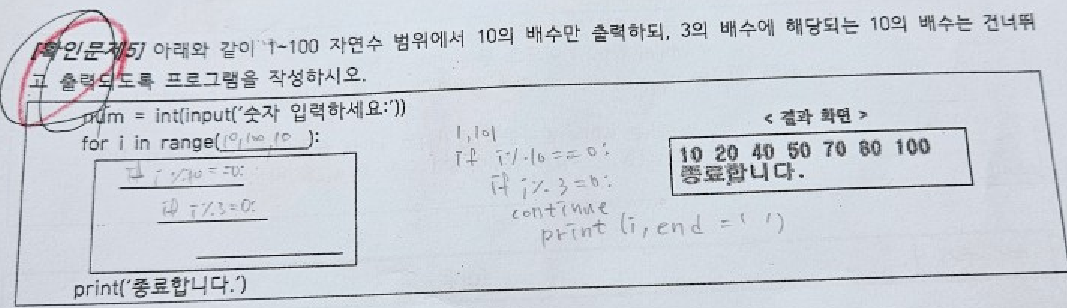 [확인문제5] 아래와 같이 1~100 자연수 범위에서 10의 배수만 출력하되, 3의 배수에 해당되는 10의 배수는 건너뛰
고 출력되도록 프로그램을 작성하시오.
num = int(input('숫자 입력하세요:'))
for i in range(10,100,10):
if i%10==0:
if i%3=0:
print('종료합니다.')
1,101
if i%10==0:
if i%3=0:
continue
print(i,end=' ')
< 결과 화면 >
10 20 40 50 70 80 100
종료합니다.